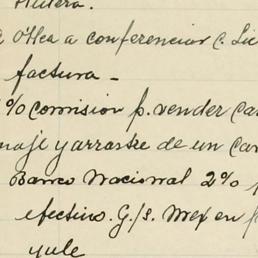 a conferenciar c. Lic
factura -
% comisión p. vender ca
naje y arrastre de un car
Banco Nacional 2%
efectivo. G/s. Mex en
yule